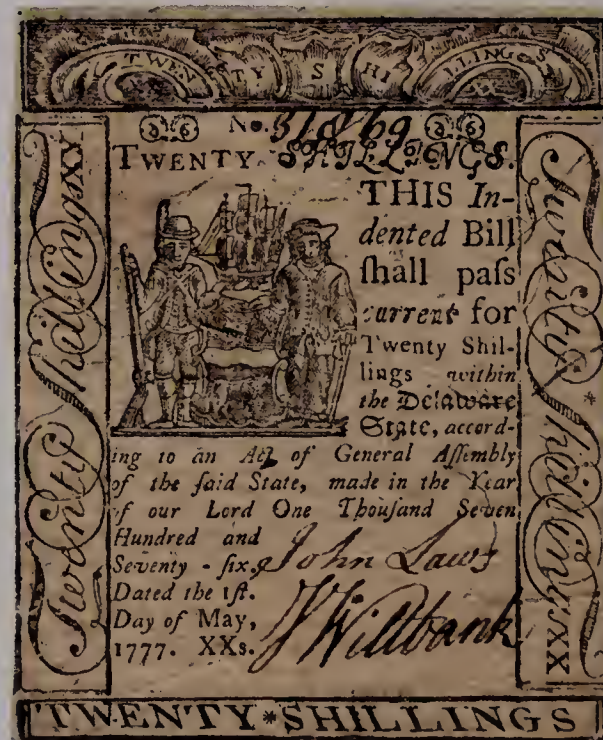 TWENTY SHILLINGS
No. 31869
TWENTY SHILLINGS.
THIS In-
dented Bill
ſhall paſs
current for
Twenty Shil-
lings within
the Delaware
State, accord-
ing to an Act of General Aſſembly
of the ſaid State, made in the Year
of our Lord One Thouſand Seven
Hundred and
Seventy-ſix,
Dated the 1ſt.
Day of May,
1777. XXs.
John Laws
J Wiltbank
Twenty ſhillings XX
Twenty * ſhillings XX
TWENTY*SHILLINGS